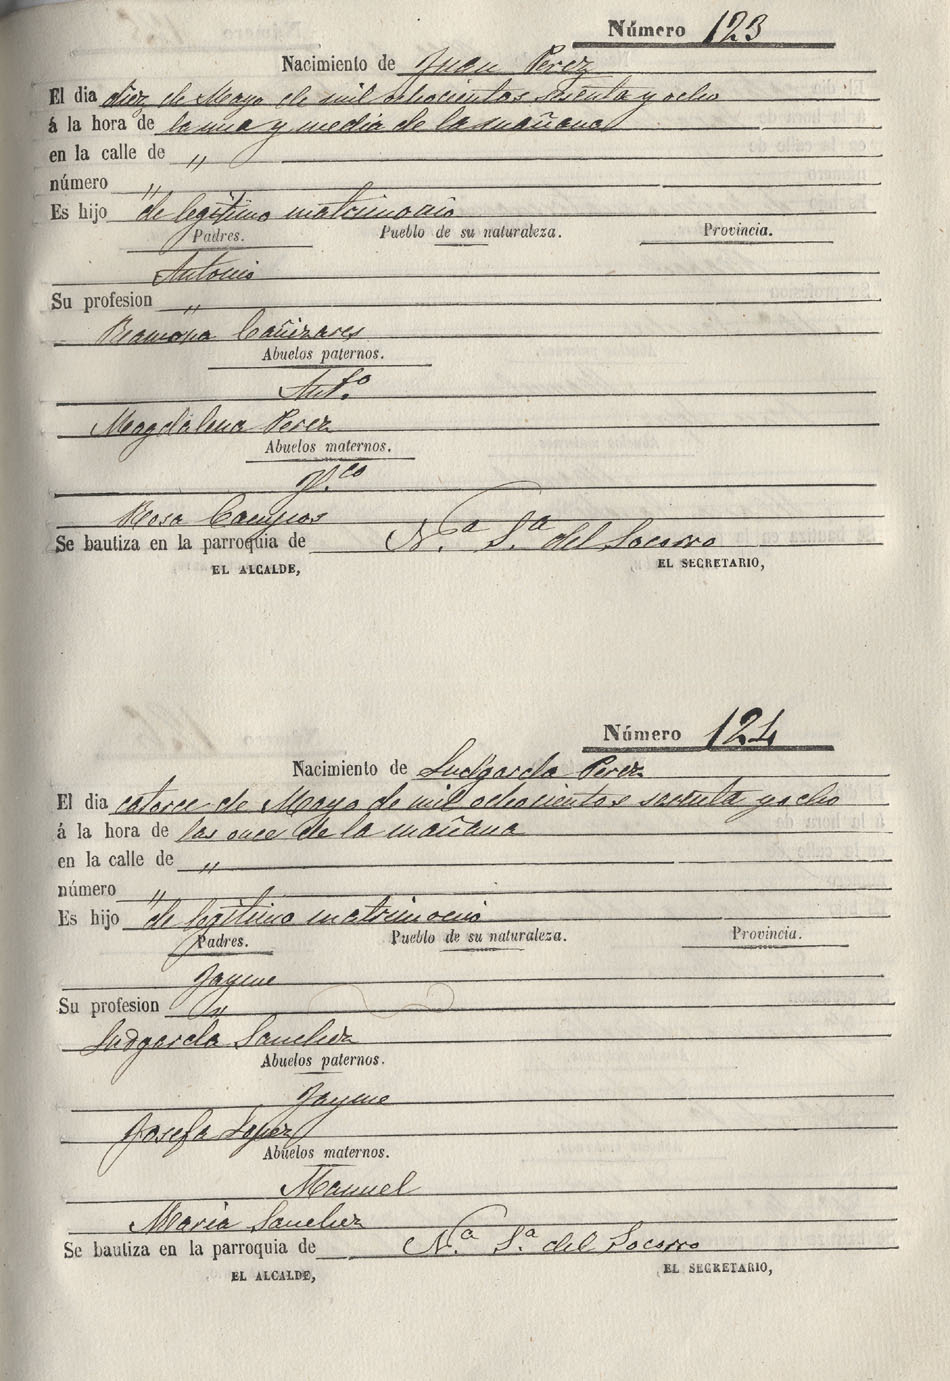 Número 123
Nacimiento de Juan Perez
El dia diez de Mayo de mil ochocientos setenta y ocho
á la hora de la una y media de la mañana
en la calle de "
número "
Es hijo de legitimo matrimonio
Padres. Pueblo de su naturaleza. Provincia.
Antonio
Su profesion "
Ramona Cañizares
Abuelos paternos.
Ant.º
Magdalena Perez
Abuelos maternos.
Rosa Campos
Se bautiza en la parroquia de N.ª S.ª del Socorro
EL ALCALDE, EL SECRETARIO,
Número 124
Nacimiento de Ludgarda Perez
El dia catorce de Mayo de mil ochocientos setenta y ocho
á la hora de las once de la mañana
en la calle de "
número "
Es hijo de legitimo matrimonio
Padres. Pueblo de su naturaleza. Provincia.
Jayme
Su profesion "
Ludgarda Sanchez
Abuelos paternos.
Jayme
Josefa Lopez
Abuelos maternos.
Manuel
Maria Sanchez
Se bautiza en la parroquia de N.ª S.ª del Socorro
EL ALCALDE, EL SECRETARIO,